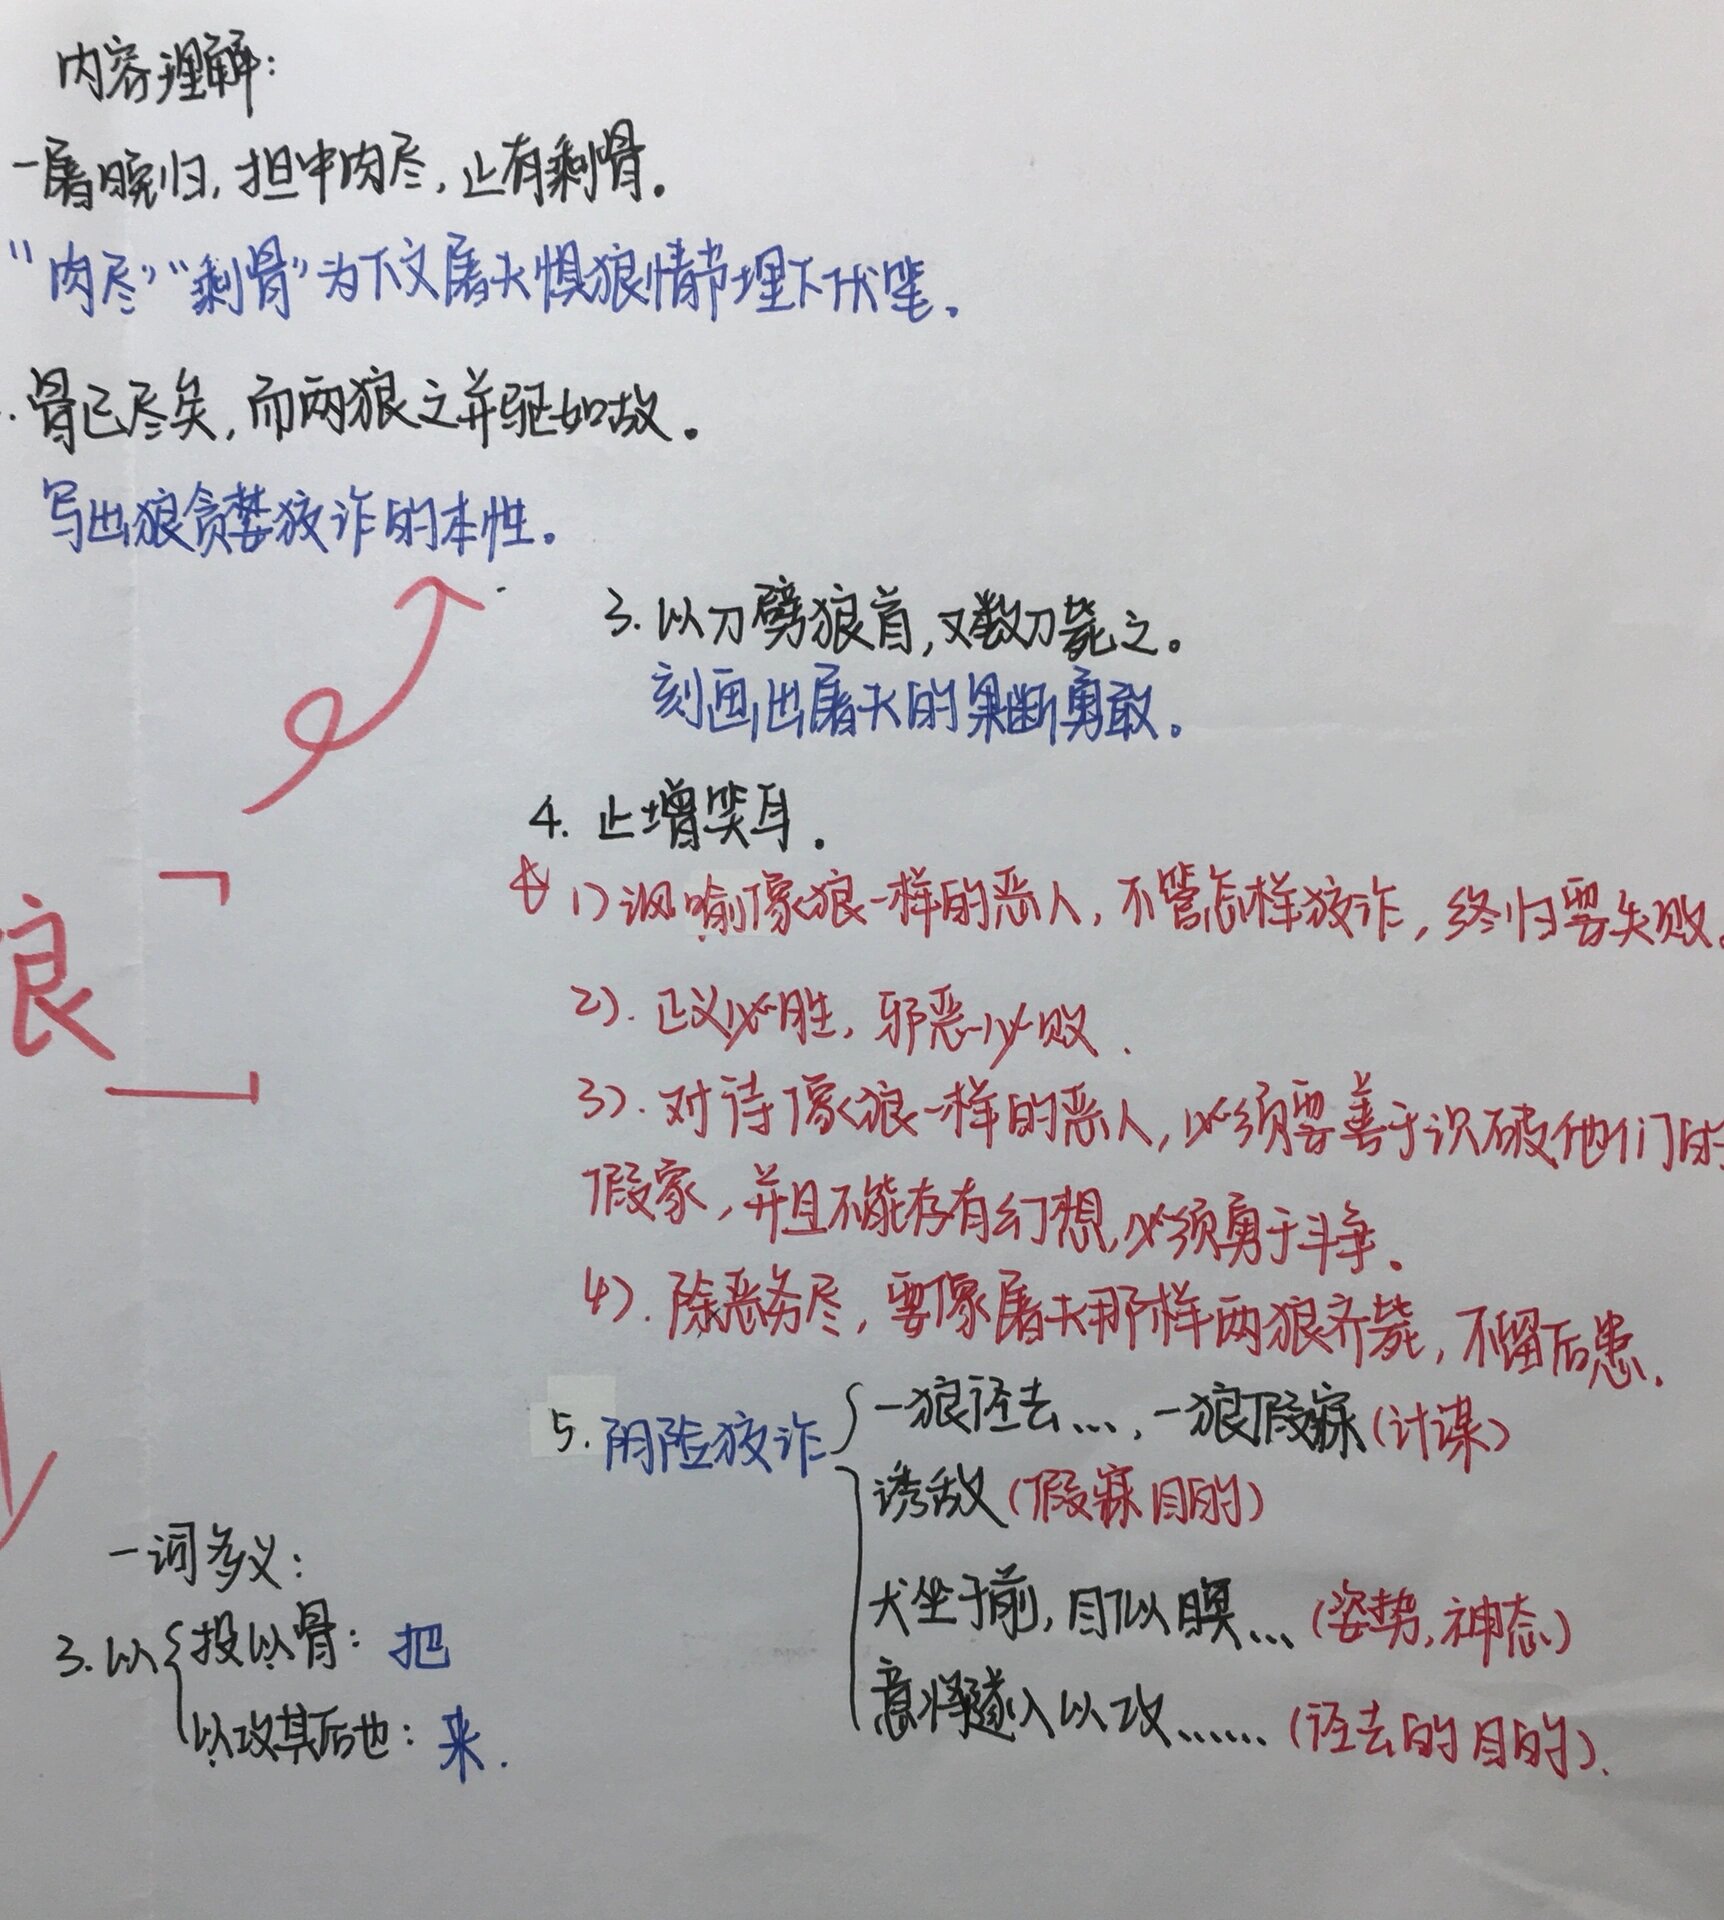 内容理解:
一屠晚归,担中肉尽,止有剩骨。
"肉尽""剩骨"为下文屠夫惧狼情节埋下伏笔。
.骨已尽矣,而两狼之并驱如故。
写出狼贪婪狡诈的本性。
3.以刀劈狼首,又数刀毙之。
刻画出屠夫的果断勇敢。
4.止增笑耳.
☆1)讽喻像狼一样的恶人,不管怎样狡诈,终归要失败。
狼
2).正义必胜,邪恶必败.
3).对待像狼一样的恶人,必须要善于识破他们的
假象,并且不能存有幻想,必须勇于斗争。
4).除恶务尽,要像屠夫那样两狼齐毙,不留后患.
5.阴险狡诈{一狼径去...,一狼假寐(计谋)
诱敌(假寐目的)
犬坐于前,目似瞑...(姿势,神态)
意将隧入以攻......(径去的目的).
一词多义:
3.以{投以骨:把
以攻其后也:来.